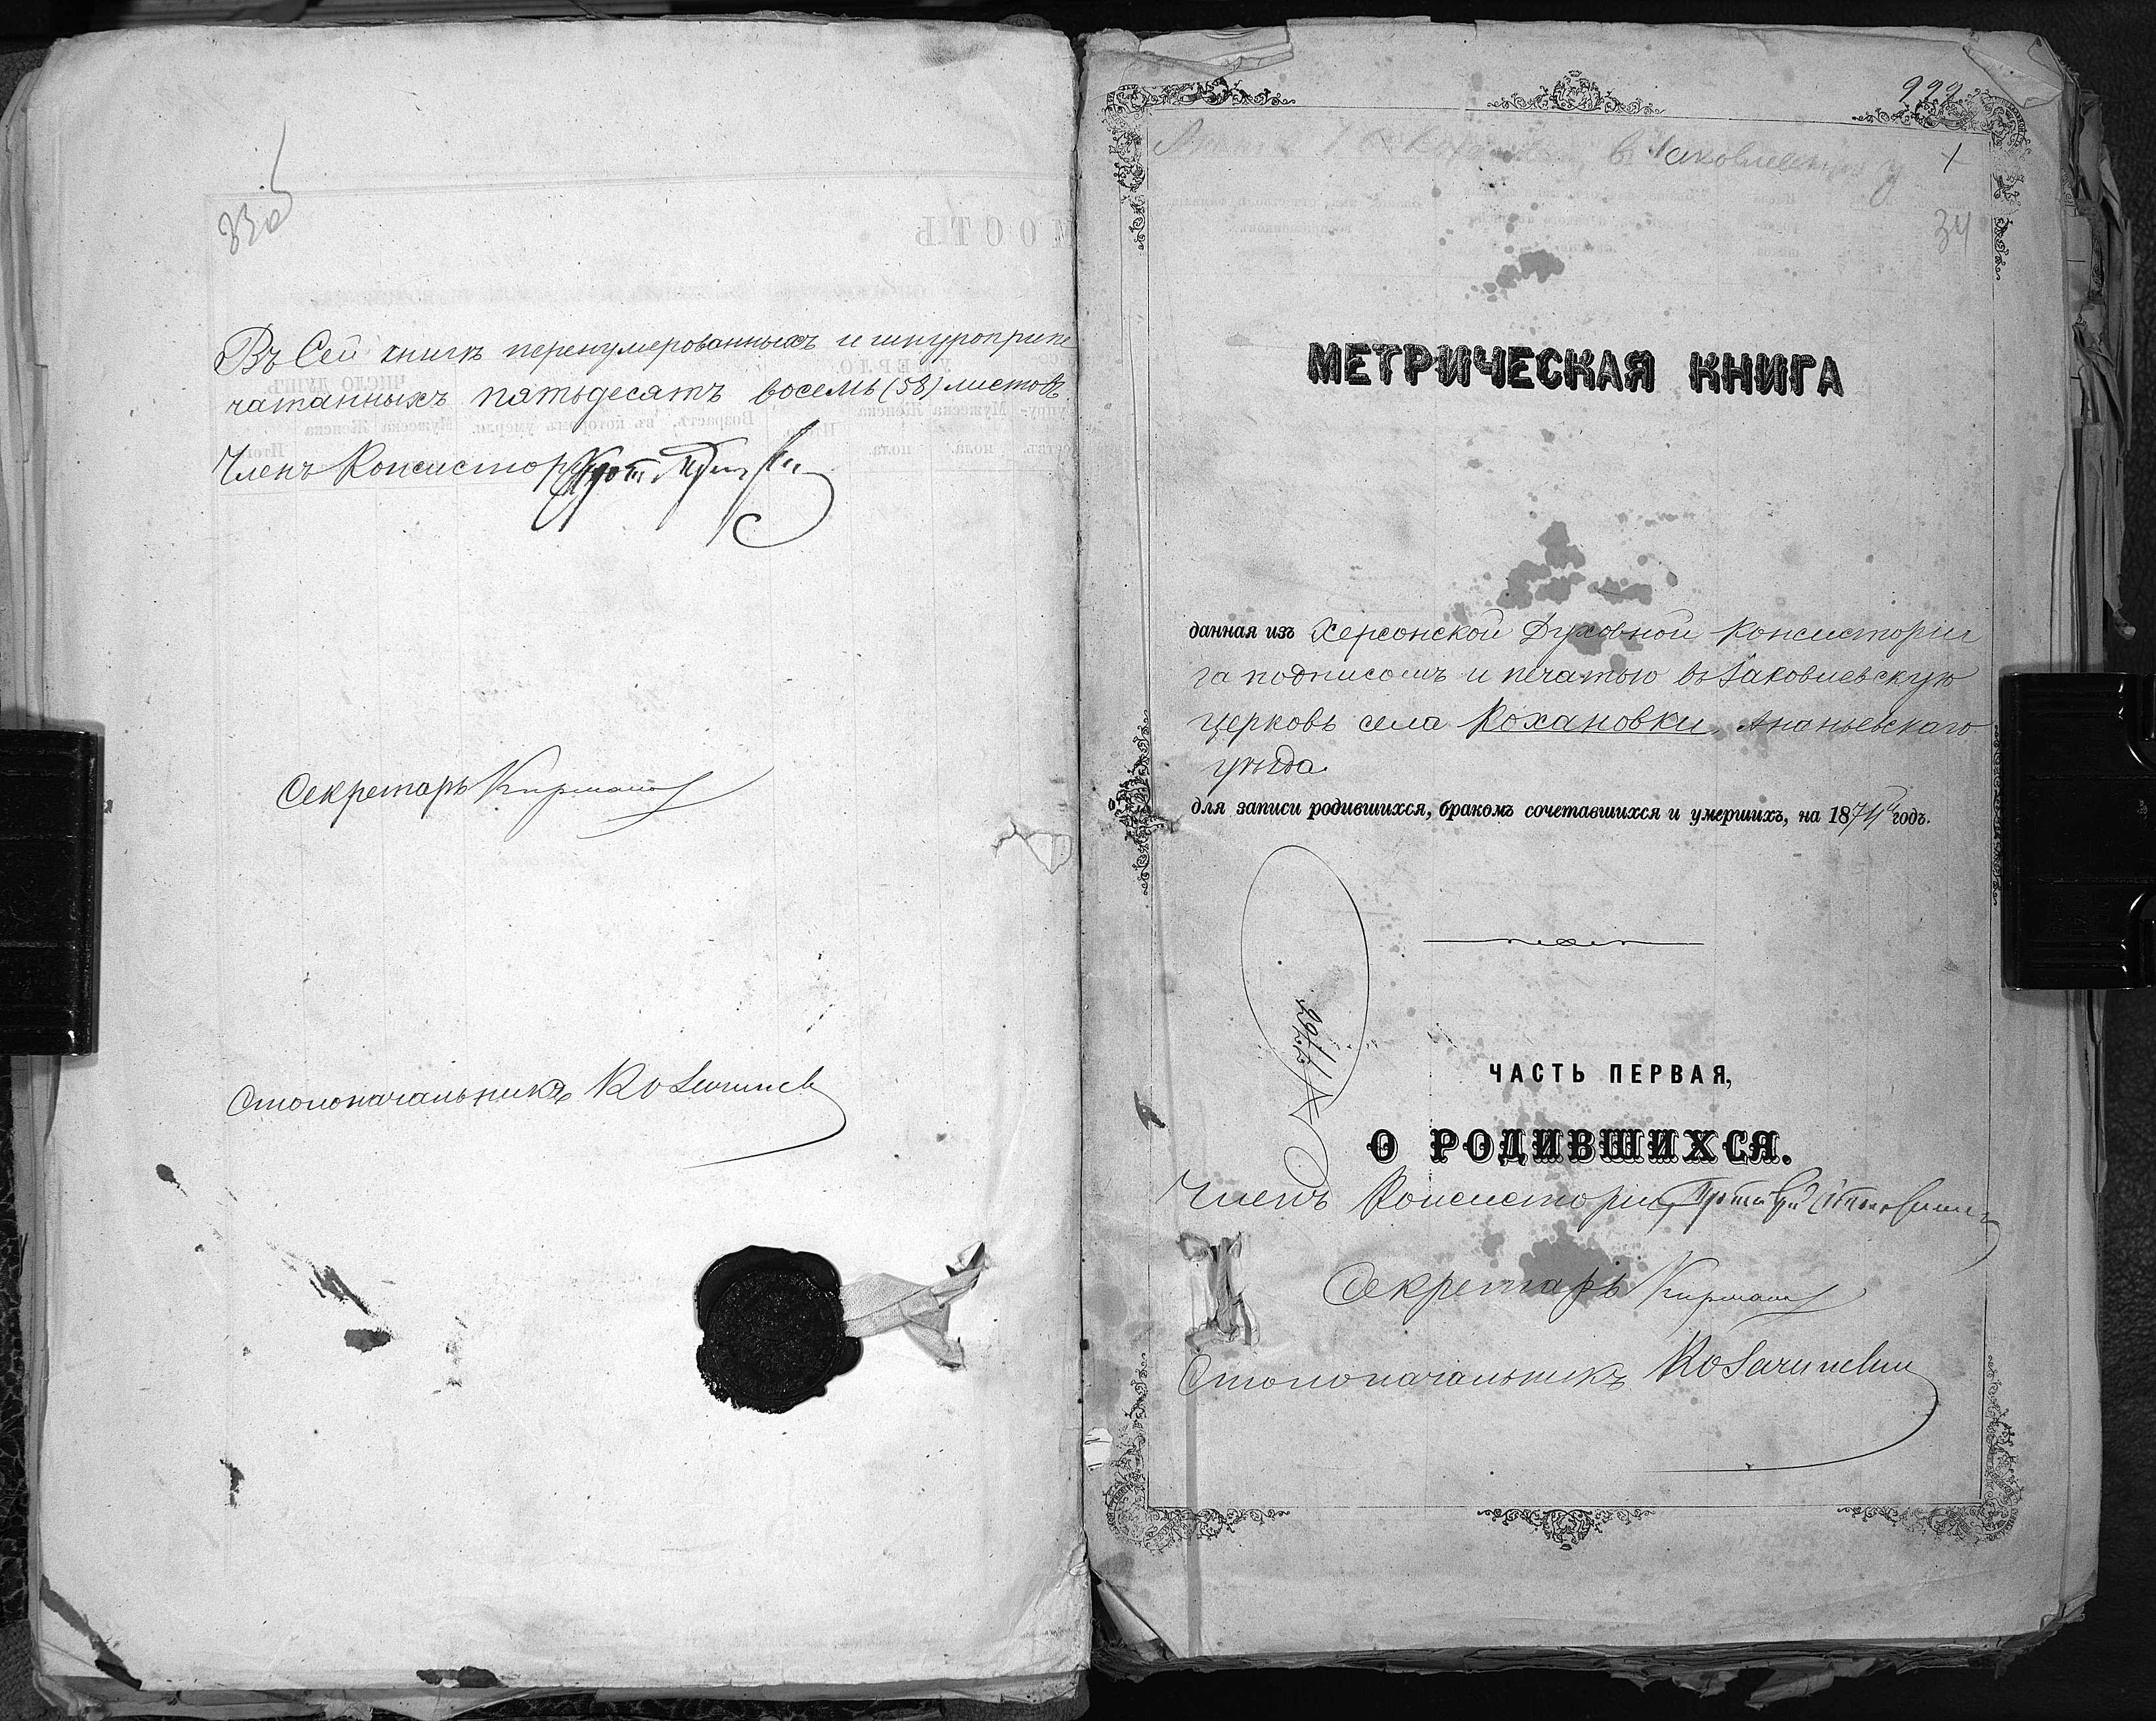 Въ Сей книгѣ перенумерованныхъ и шнуроприпе
чатанныхъ пятьдесятъ восемь (58) листовъ.
Членъ Консисторіи
Секретарь
Столоначальникъ
999
въ Іаковлевскую
34
МЕТРИЧЕСКАЯ КНИГА
данная изъ Херсонской Духовной Консисторіи
за подписомъ и печатью въ Іаковлевскую
церковь села Кохановки, Ананьевскаго
уѣзда
для записи родившихся, бракомъ сочетавшихся и умершихъ, на 1874й годъ.
ЧАСТЬ ПЕРВАЯ,
О РОДИВШИХСЯ.
Членъ Консисторіи,
Секретарь
Столоначальникъ